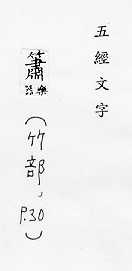 五經文字
簫
(竹部，P.30)